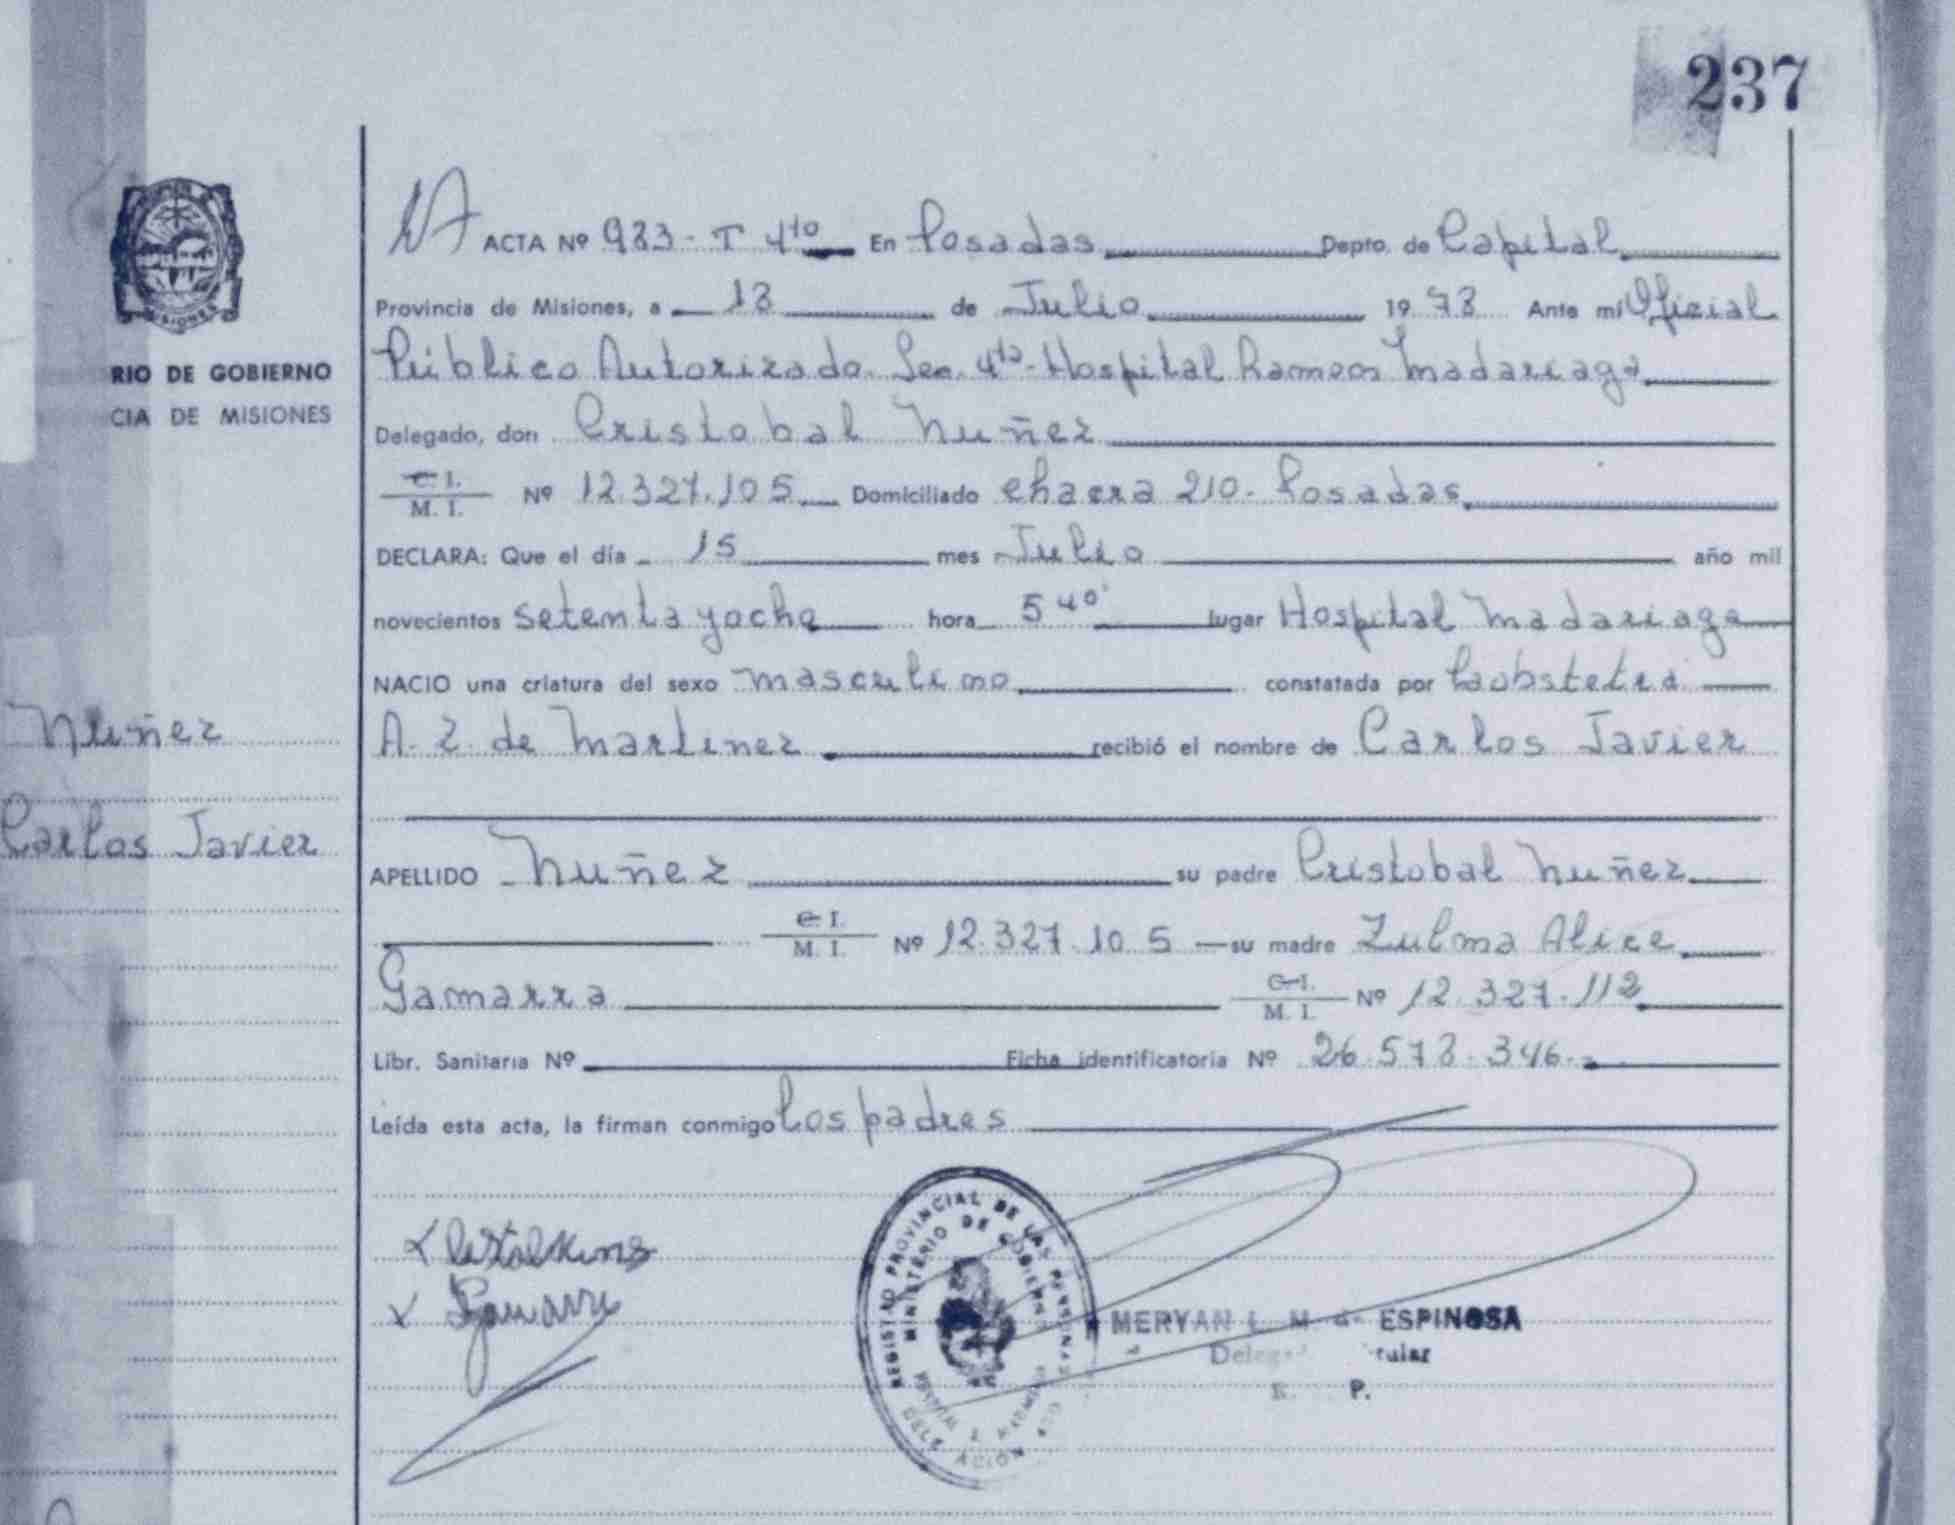 237
NA ACTA Nº 983 - T 4to En Posadas Depto. de Capital
Provincia de Misiones, a 18 de Julio 1978 Ante mi Oficial
RIO DE GOBIERNO
Público Autorizado. Sec. 4ta. Hospital Ramon Madariaga
CIA DE MISIONES
Delegado, don Cristobal Nuñez
C. I.
M. I. Nº 12.327.105 Domiciliado chacra 210. Posadas
DECLARA: Que el día 15 mes Julio año mil
novecientos setenta y ocho hora 5 40' lugar Hospital Madariaga
NACIO una criatura del sexo masculino constatada por la obstetra
Nuñez
A. Z. de Martinez recibió el nombre de Carlos Javier
Carlos Javier
APELLIDO Nuñez su padre Cristobal Nuñez
C. I.
M. I. Nº 12.327.105 su madre Zulma Alice
Gamarra C. I.
M. I. Nº 12.327.112
Libr. Sanitaria Nº Ficha identificatoria Nº 26.578.346.
Leída esta acta, la firman conmigo los padres
REGISTRO PROVINCIAL DE LAS PERSONAS
MINISTERIO DE GOBIERNO
DELEGACION
MERYAN L. M. de ESPINOSA
Delegada Titular
R. P.
MISIONES